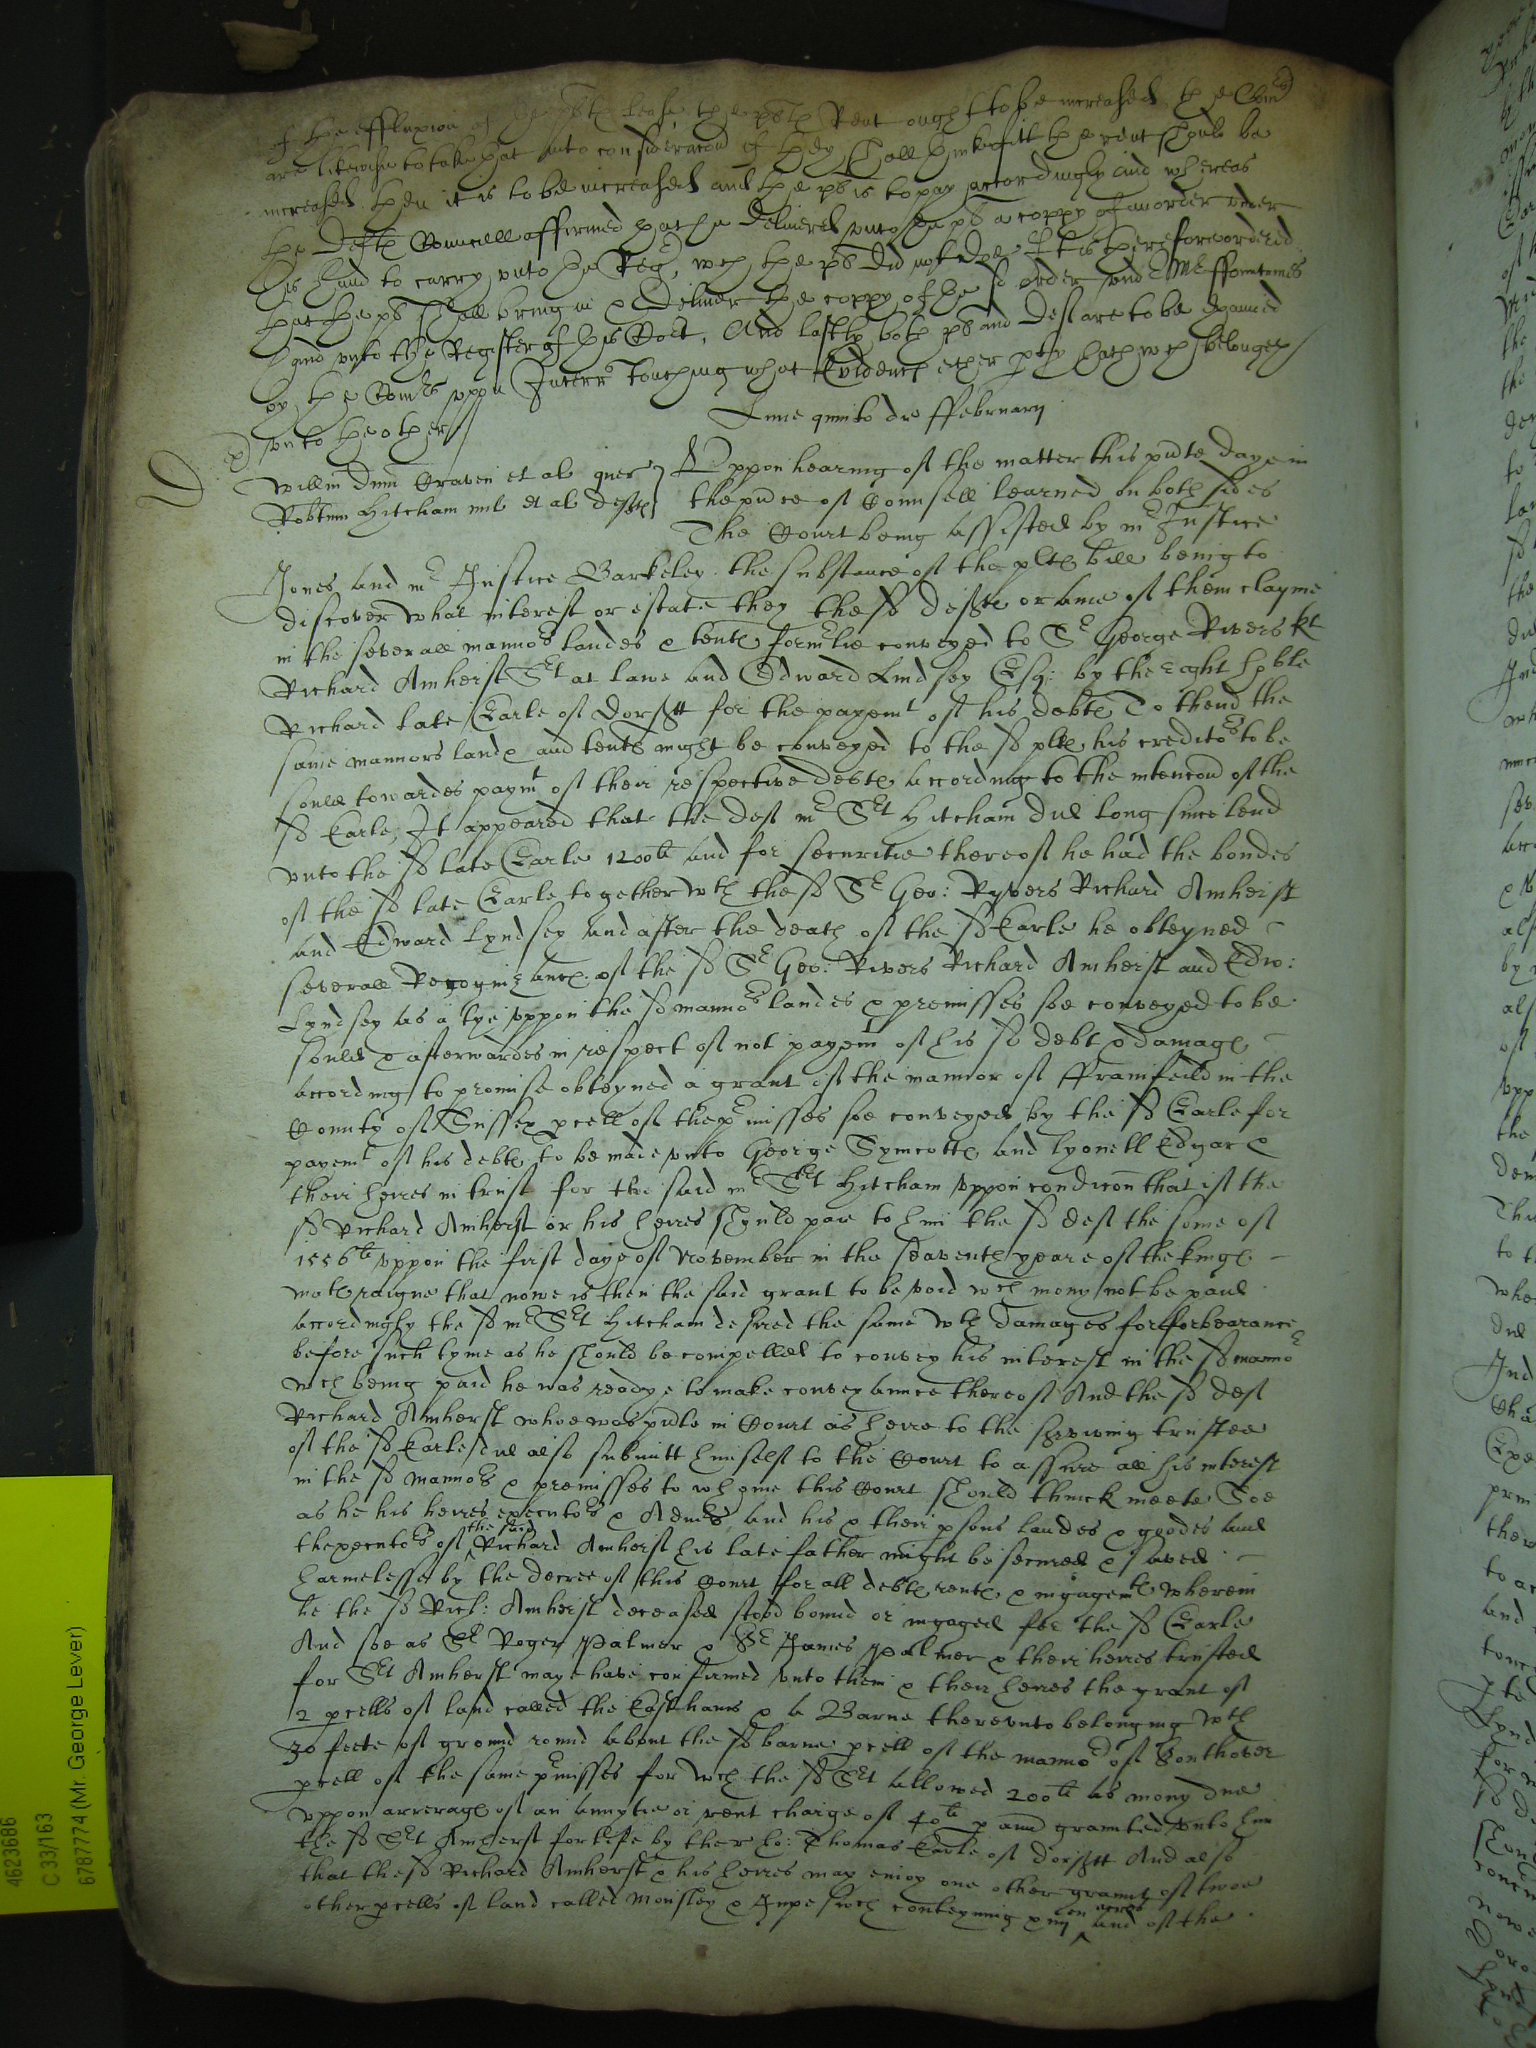 of the effluxion of the lease the rent ought to be increased the Comrs
are likewise to take that into consideracon if they shall thinke fitt the rent should be
increased then it is to be increased and the pl is to pay accordingly and whereas
the Defts Councell affirmed hath a delivered unto the pl a coppy of an order under
his hand to carry unto the Regr, wch the pl did not doe It is therefore ordered
that the pl shall bring in & deliver the coppy of the sd order under Mr
hand unto the Register of this Court, And lastly both pl and Deft are to be examined
by the Comrs uppon Interr touching what Evidence either pty hath wch belongeth
unto the other
Lune quinto die ffebruarij
D
Willm Dnm Craven et al quer
Robtum Hitcham mil et al defts
Uppon hearing of the matter this pnte daye in
the pnce of Counsell learned on both sides
The Court being assisted by mr Justice
Jones and mr Justice Barkeley the substance of the plts bill being to
discover what interest or estate they the sd defts or anie of them clayme
in the severall mannors landes & tents formerlie conveyed to Sr George Rivers Kt
Richard Amherst Srt at lawe and Edward Lindsey Esq: by the right hoble
Richard late Earle of Dorsett for the payemt of his debts To thend the
same mannors lands and tents might be conveyed to the sd plts his creditors to be
sould towardes paymt of their respective debts according to the intencon of the
sd Earle, It appeared that the deft mr Srt Hitcham did long since lend
unto the sd late Earle 1200li and for securitie thereof he had the bondes
of the sd late Earle together wth the sd Sr Geo: Ryvers Richard Amherst
and Edward Lyndsey and after the death of the sd Earle he obteyned
severall Recognizances of the sd Sr Geo: Rivers Richard Amherst and Edw:
Lyndsey as a tye uppon the sd mannors landes & premisses soe conveyed to be
sould & afterwardes in respect of not payemt of his sd debt & damage
according to promise obteyned a grant of the mannor of fframfeild in the
County of Sussex pcell of the pmisses soe conveyed by the sd Earle for
payemt of his debts to be made unto George Symcotts and Lyonell Edgar &
their heires in trust for the said mr Srt Hitcham uppon condicon that if the
sd Richard Amherst or his heires should paie to him the sd deft the some of
1556li uppon the first daye of November in the seaventh yeare of the kings
mats raigne that nowe is then the said grant to be void wch mony not be paid
accordingly the sd mr Srt Hitcham desired the same wth damages for forbearance
before such tyme as he should be compelled to convey his interest in the sd mannor
wch being paid he was readye to make conveyance thereof And the sd deft
Richard Amherst whoe was pnte in Court as heire to the surviving trustee
of the sd Earle did also submitt himselfe to the Court to assure all his interest
in the sd mannors & premisses to whome this Court should thinck meete Soe
as he his heires executors & Admrs and his & their psons landes & goodes and
thexecutors of the said Richard Amherst his late father might be secured & saved
harmelesse by the decree of this Court for all debts rents & ingagemts wherein
he the sd Rich: Amherst deceased stood bound or ingaged for the sd Earle
And soe as Sr Roger Palmer & Sr James Palmer & their heires trusted
for Srt Amherst maye have confirmed unto them & their heires the grant of
2 pcells of land called the Easthams & a Barne thereunto belonging wth
30 feete of ground round about the sd barne pcell of the mannor of Southover
pcell of the same pmisses for wch the sd Srt allowed 200li as mony due
uppon arrerage of an annytie or rent charge of 40li p annu graunted unto him
the sd Srt Amherst for life by the r ho: Thomas Earle of Dorsett And also
that the sd Richard Amherst & his heires may enioy one other graunt of twoe
other pcells of land called Monsley & wch conteyning xiiij en acres and of the
4623686
C 33/163
6787774 (Mr. George Lever)